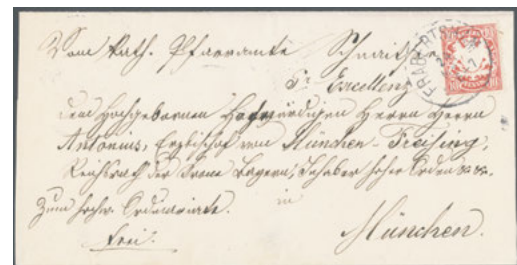 Vom Kath. Pfarramte
Sr Excellenz
dem Hochgebornen Hochwürdigen Herrn Herrn
Antonius, Erzbischof von München-Freising,
Reichsrath der Krone Bayern, Inhaber hoher Orden
Zum hochw. Ordinariate.
in
frei.
München.